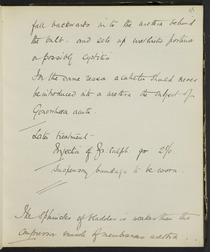 fall backwards into the urethra behind
the bulb - and sets up urethritis posterior
or possibly cystitis
For the same reason a catheter should never
be introduced into a urethra the subject of
Gonorrhoea acute
Later treatment -
Injection of Zn. Sulph. gr 2/℥
Suspensory bandage to be worn.
The Sphincter of bladder is weaker than the
compressor muscle of membranous urethra.